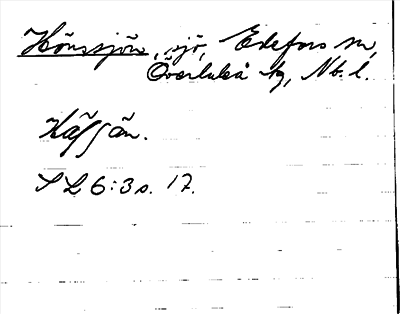 Hönssjön, sjö, Edefors sn,
Överluleå tg, Nb. l.
Käffjän.
S L 6:3 s. 17.